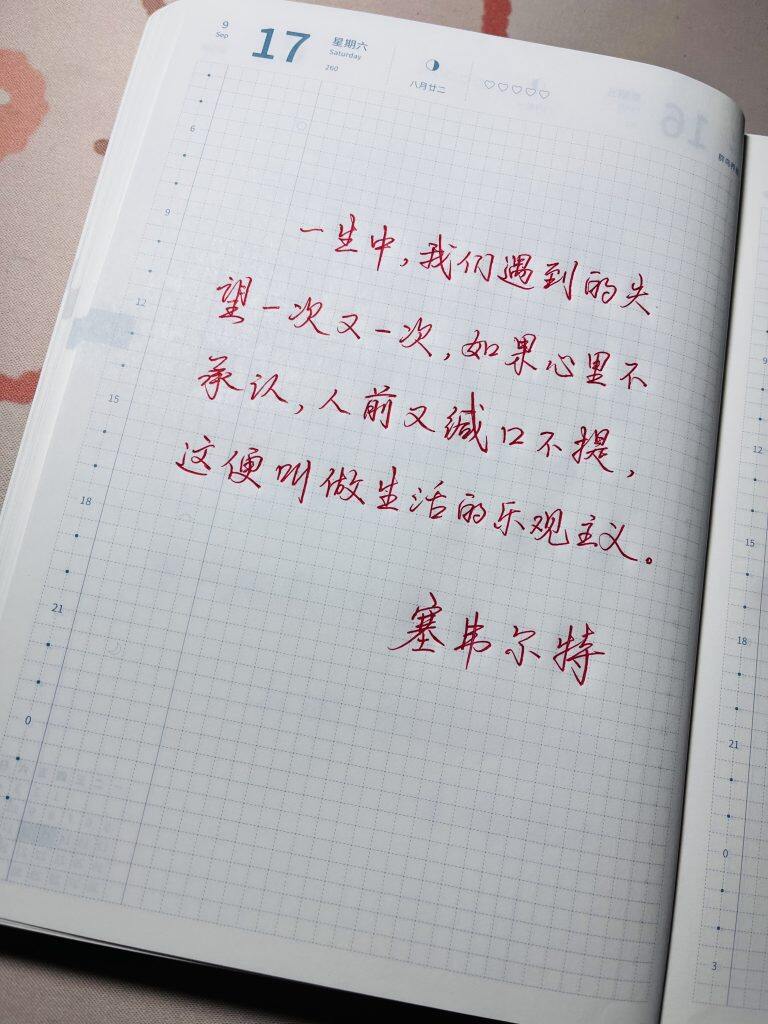 9
Sep
17
星期六
Saturday
260
八月廿二
6
9
12
15
18
21
0
一生中,我们遇到的失
望一次又一次,如果心里不
承认,人前又缄口不提,
这便叫做生活的乐观主义。
塞韦尔特
16
9
12
15
18
21
0
3